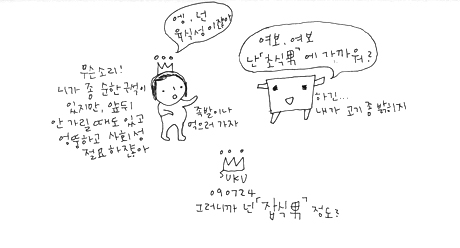 엥, 넌
육식성이잖아
여보, 여보
난 「초식男」 에 가까워?
무슨소리!
니가 좀 순한 구석이
있지만, 앞뒤
안 가릴 때도 있고
엉뚱하고 사회성
절요하잖아
족발이나
먹으러 가자
하긴...
내가 고기 좀 밝히지
SUKU
090724
그러니까 넌 「잡식男」 정도?